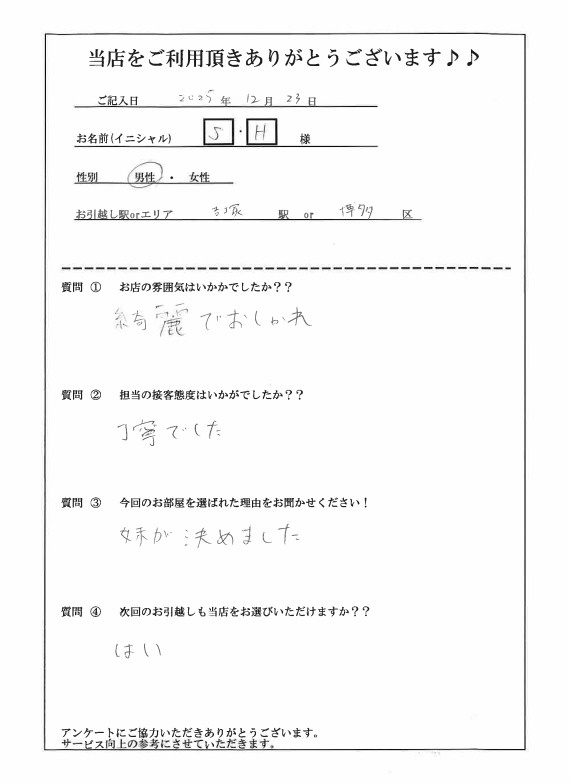 当店をご利用頂きありがとうございます♪♪
ご記入日 2025年 12月 23日
お名前(イニシャル) S・H 様
性別 男性 ・ 女性
お引越し駅orエリア 吉塚 駅 or 博多 区
質問 ① お店の雰囲気はいかかでしたか??
綺麗でおしゃれ
質問 ② 担当の接客態度はいかがでしたか??
丁寧でした
質問 ③ 今回のお部屋を選ばれた理由をお聞かせください!
妹が決めました
質問 ④ 次回のお引越しも当店をお選びいただけますか??
はい
アンケートにご協力いただきありがとうございます。
サービス向上の参考にさせていただきます。